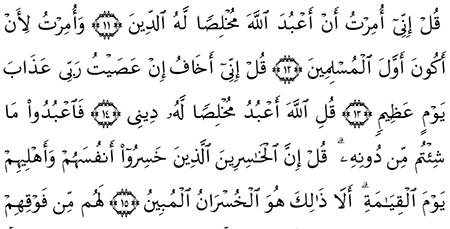 قُلْ إِنِّىٓ أُمِرْتُ أَنْ أَعْبُدَ ٱللَّهَ مُخْلِصًا لَّهُ ٱلدِّينَ ﴿١١﴾ وَأُمِرْتُ لِأَنْ
أَكُونَ أَوَّلَ ٱلْمُسْلِمِينَ ﴿١٢﴾ قُلْ إِنِّىٓ أَخَافُ إِنْ عَصَيْتُ رَبِّى عَذَابَ
يَوْمٍ عَظِيمٍ ﴿١٣﴾ قُلِ ٱللَّهَ أَعْبُدُ مُخْلِصًا لَّهُۥ دِينِى ﴿١٤﴾ فَٱعْبُدُوا۟ مَا
شِئْتُم مِّن دُونِهِۦ ۗ قُلْ إِنَّ ٱلْخَـٰسِرِينَ ٱلَّذِينَ خَسِرُوٓا۟ أَنفُسَهُمْ وَأَهْلِيهِمْ
يَوْمَ ٱلْقِيَـٰمَةِ ۗ أَلَا ذَٰلِكَ هُوَ ٱلْخُسْرَانُ ٱلْمُبِينُ ﴿١٥﴾ لَهُم مِّن فَوْقِهِمْ